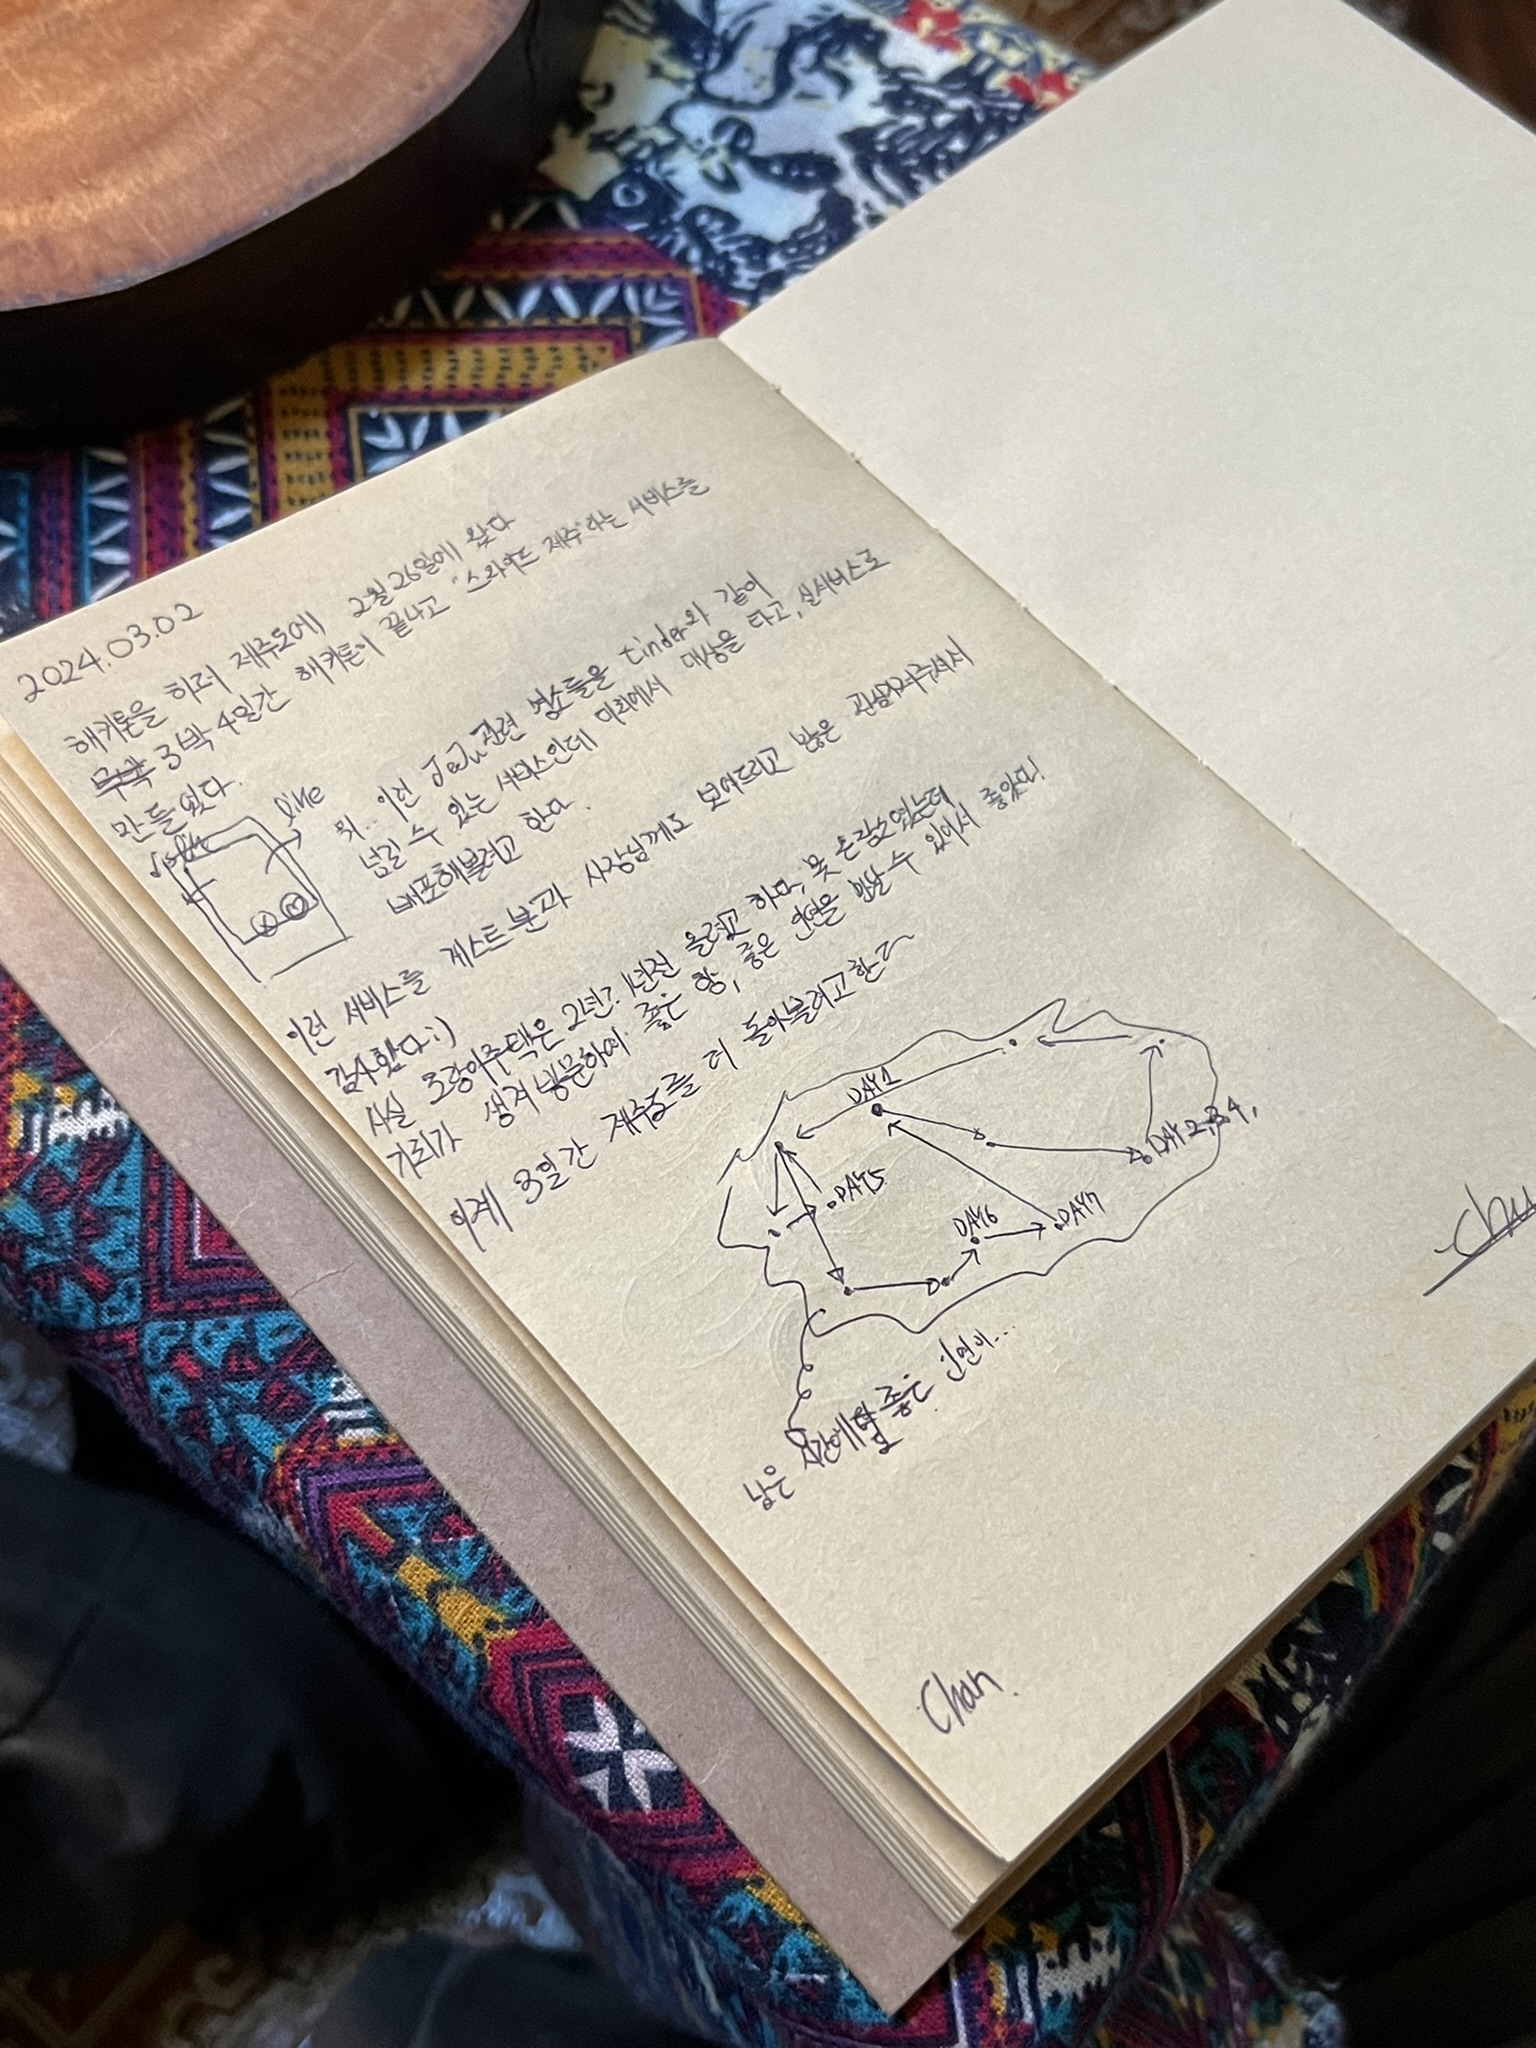 2024.03.02
해커톤을 하러 제주도에 2월 26일에 왔다
무박 3박 4일간 해커톤이 끝나고 "스와이프 제주"라는 서비스를
만들었다.
like
뭐.. 이런 JeJu 관련 명소들을 tinder와 같이
넘길 수 있는 서비스인데 미처에서 대상을 타고, 실서비스로
배포해볼려고 한다.
이런 서비스를 게스트분과 사장님께도 보여드리고 많은 관심가져주셔서
감사했다:)
사실 오랑이주택은 2년? 1년전 올려고 하다, 못 온 장소였는데
기회가 생겨 방문하여 좋은 향, 좋은 인연을 만날 수 있어서 좋았따!
이제 3일간 제주도를 더 돌아볼려고 한다~
DAY1
DAY 2,3,4,
DAY5
DAY6
DAY7
남은 시간에 좋은 인연이...
Chan.